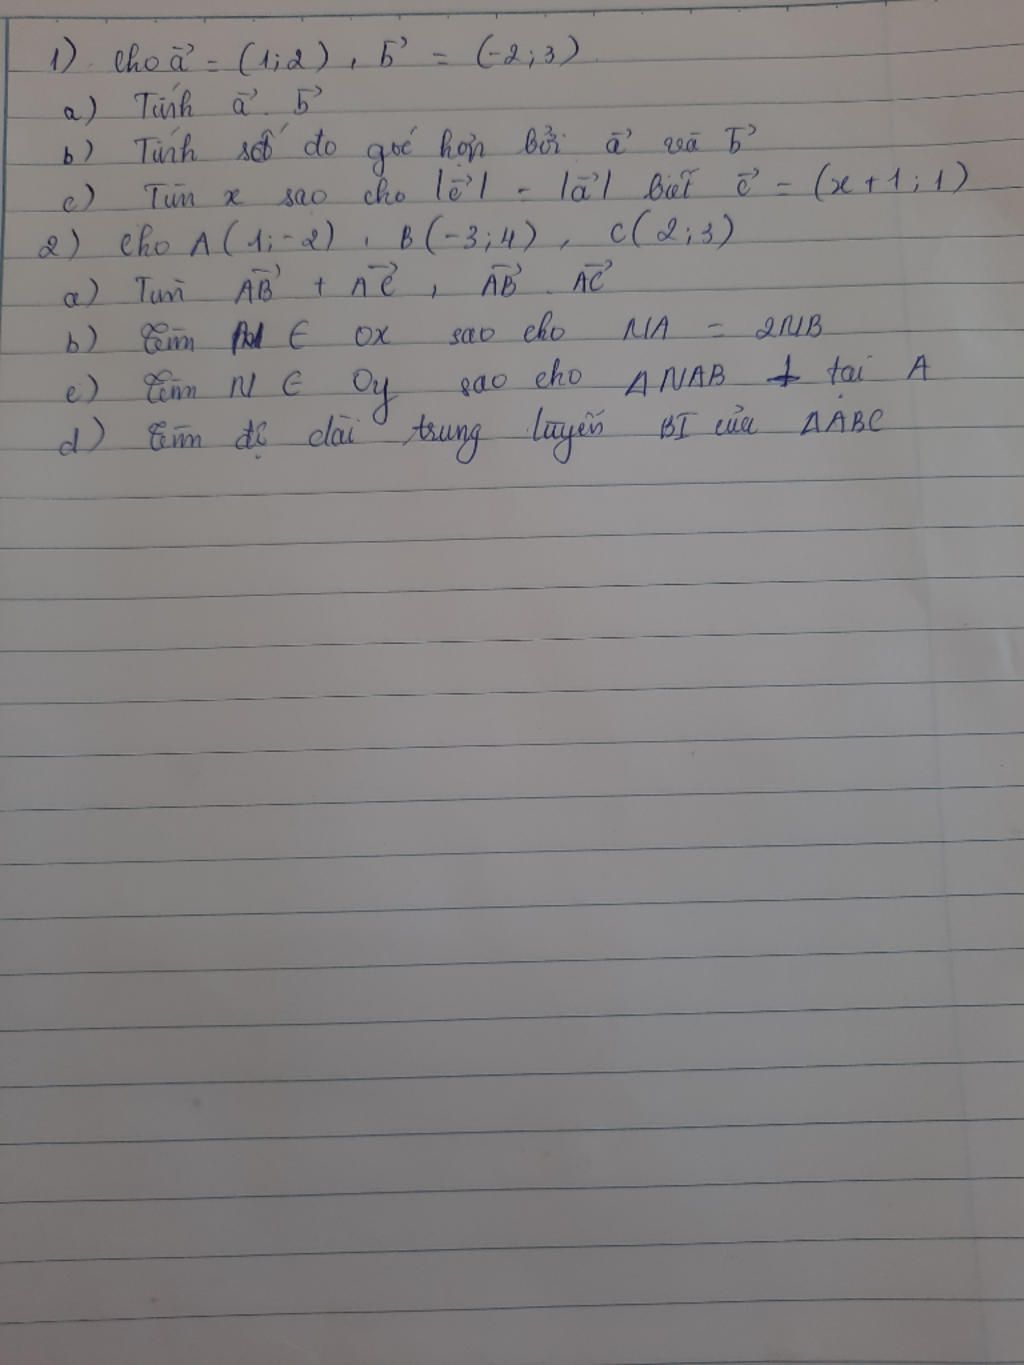 1) Cho a⃗ = (1;2), b⃗ = (-2;3)
a) Tính a⃗ . b⃗
b) Tính số đo góc hợp bởi a⃗ và b⃗
c) Tìm x sao cho |c⃗| = |a⃗| biết c⃗ = (x+1;1)
2) Cho A(1;-2), B(-3;4), C(2;3)
a) Tìm AB⃗ + AC⃗, AB⃗ . AC⃗
b) tìm ∈ Ox sao cho NA = 2NB
c) tìm N ∈ Oy sao cho ΔNAB ⊥ tại A
d) tìm độ dài trung tuyến BI của ΔABC